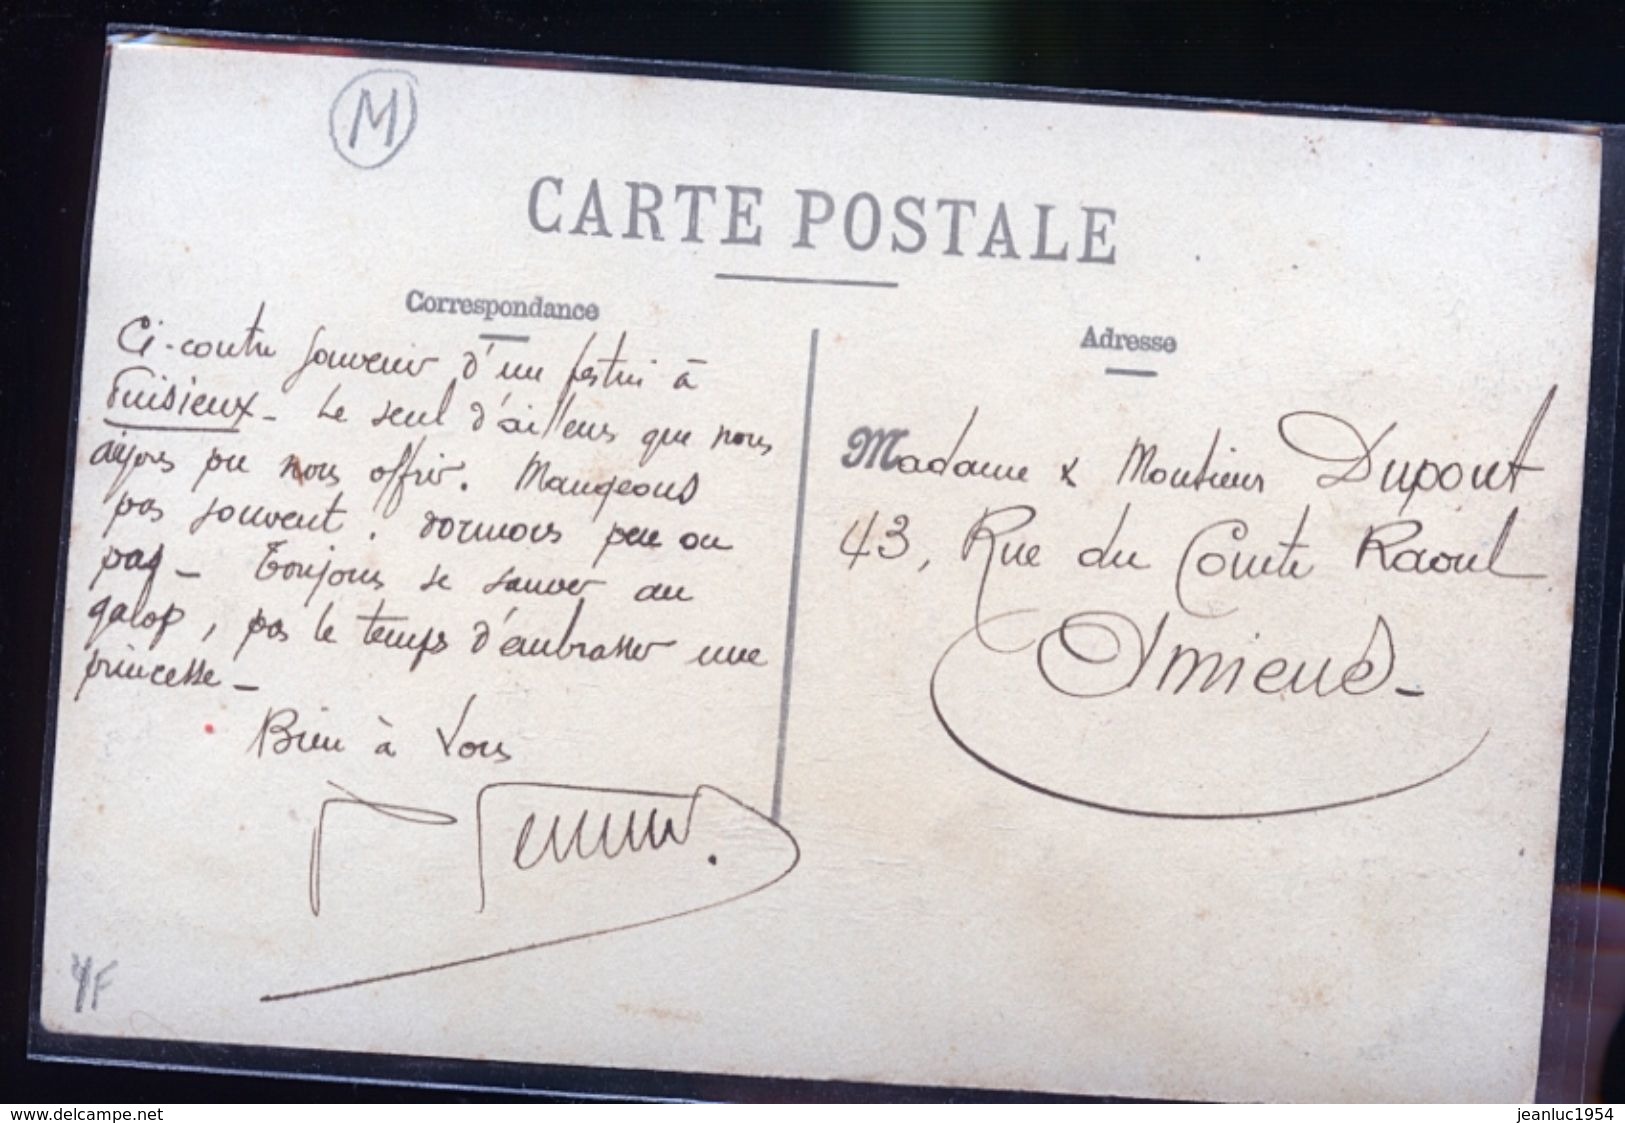 M
CARTE POSTALE
Correspondance
Ci-contre souvenir d'un festin à
Puisieux - Le seul d'ailleurs que nous
ayons pu nous offrir. Mangeons
pas souvent. dormons peu ou
pas - Toujours se sauver au
galop, pas le temps d'embrasser une
princesse -
Bien à Vous
4F
Adresse
Madame & Monsieur Dupont
43, Rue du Comte Raoul
Amiens -
delcampe.net
jeanluc1954